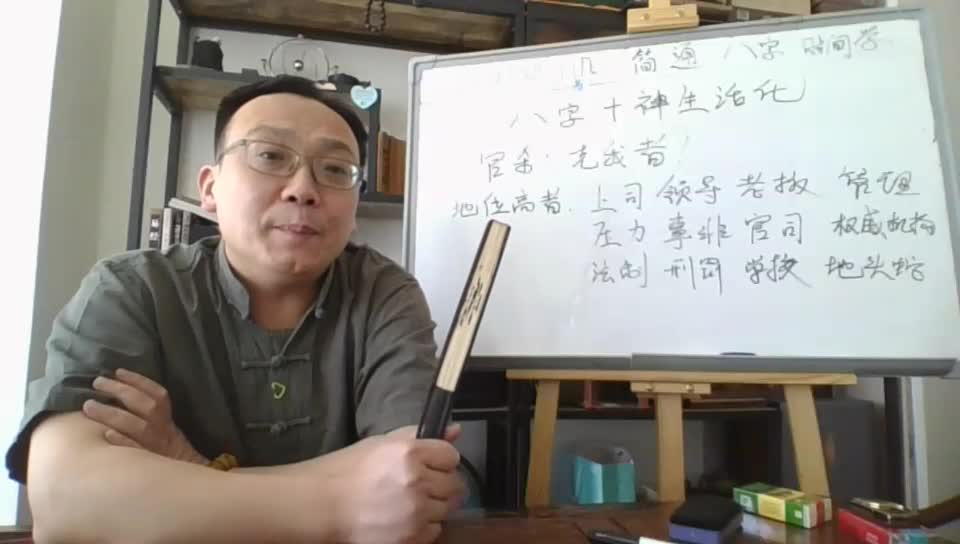 简通 八字 时间学
八字十神生活化
官杀·克我者!
地位高者. 上司 领导 老板 管理
压力 事非 官司 权威机构
法制 刑罚 学校 地头蛇